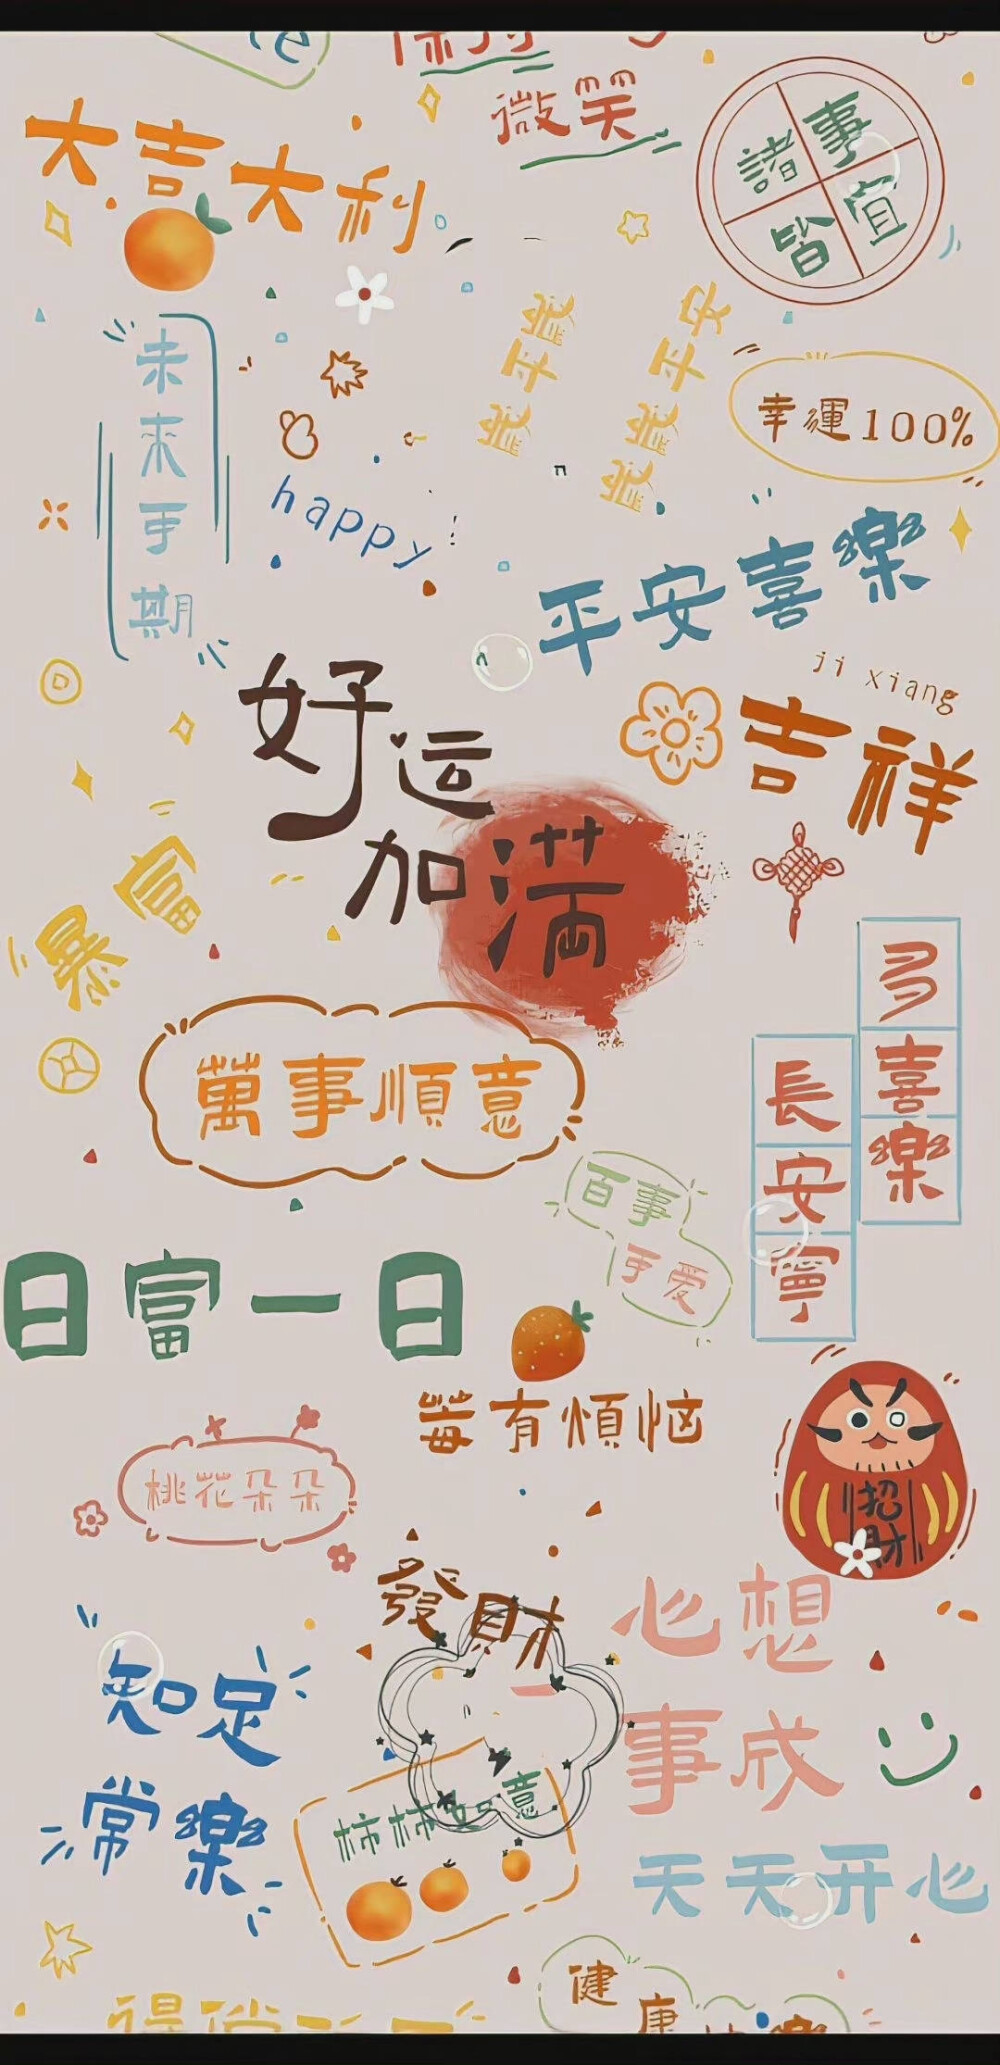 微笑
大吉大利
諸事皆宜
未来可期
歲平歲
歲歲平安
幸運100%
happy
平安喜樂
ji xiang
吉祥
好运
加满
暴富
多喜樂
長安寧
萬事順意
百事
可爱
日富一日
莓有煩恼
桃花朵朵
招財
發財
心想
事成
知足
常樂
柿柿如意
天天开心
健康